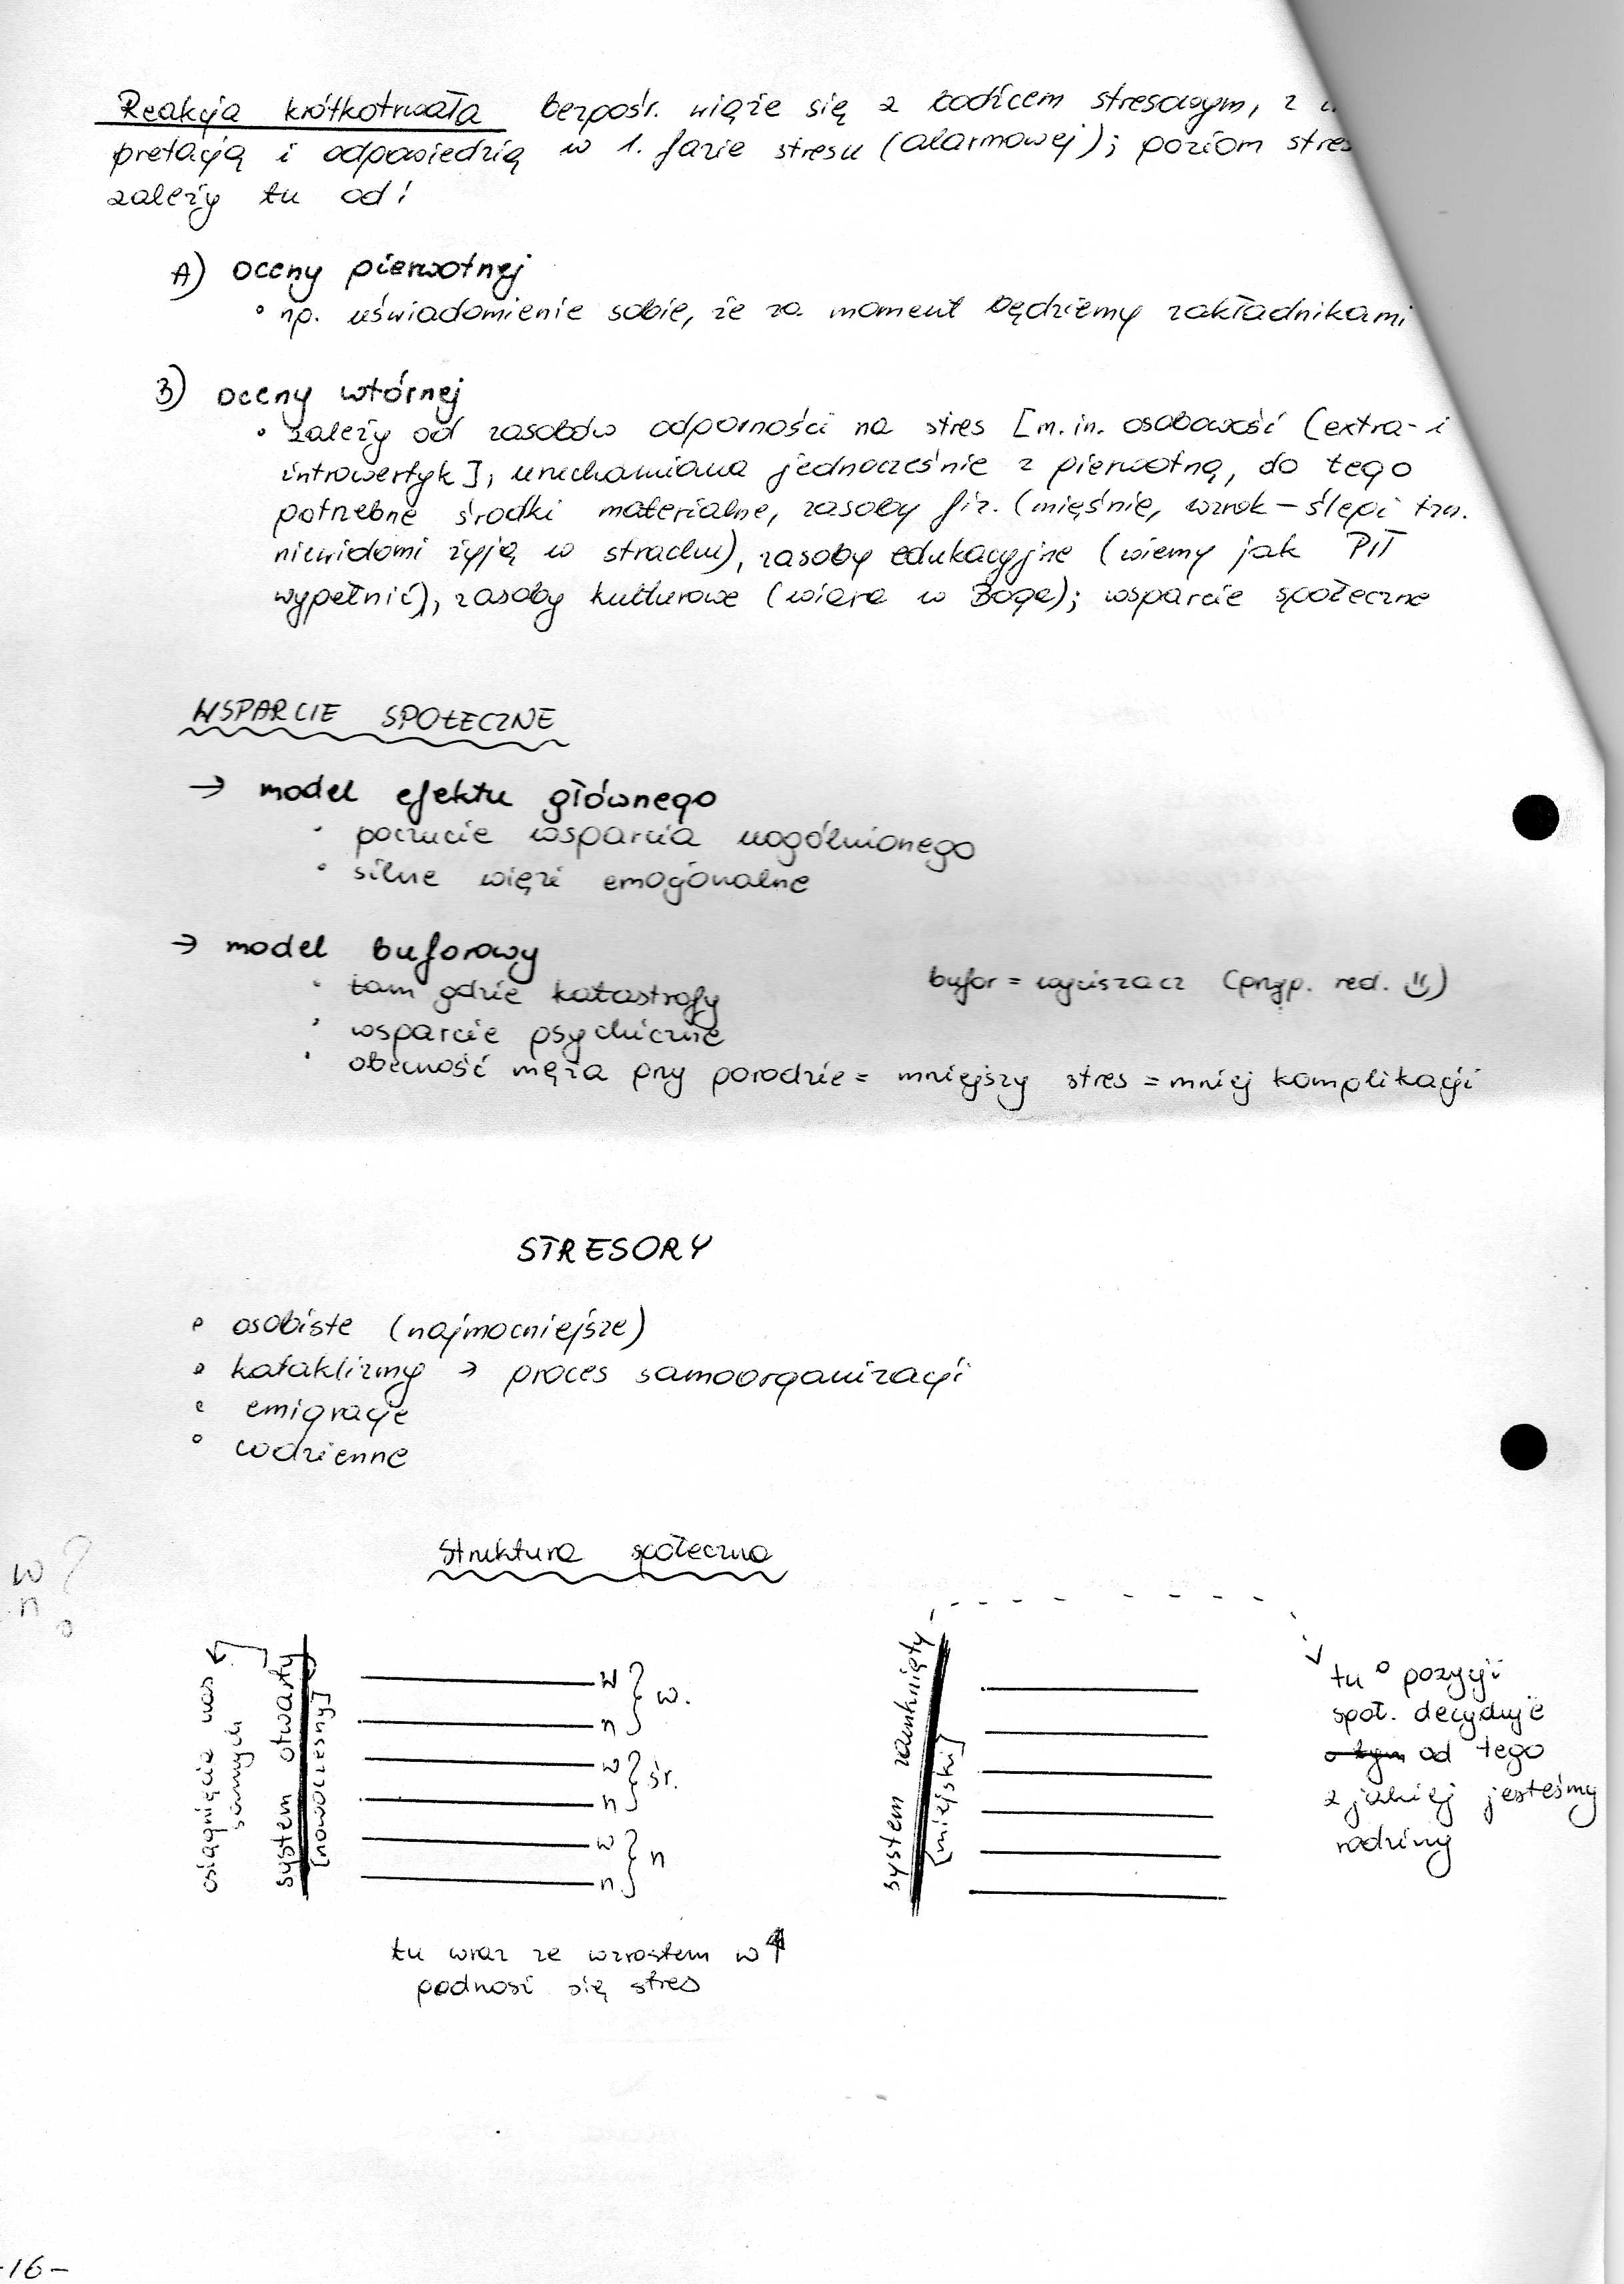 Reakcja krótkotrwała bezpośr. wiąże się z bodźcem stresowym, z
pretacją i odpowiedzią w 1. fazie stresu (alarmowej); poziom stres
zależy tu od:
A) oceny pierwotnej
• np. uświadomienie sobie, że za moment będziemy zakładnikami
B) oceny wtórnej
• zależy od zasobów odporności na stres [m.in. osobowość (extra- i
introwertyk]; uruchamiana jednocześnie z pierwotną, do tego
potrzebne środki materialne, zasoby fiz. (mięśnie, wzrok – ślepi tzn.
niewidomi żyją w strachu), zasoby edukacyjne (wiemy jak PIT
wypełnić), zasoby kulturowe (wiara w Boga); wsparcie społeczne
WSPARCIE SPOŁECZNE
→ model efektu głównego
• poczucie wsparcia uogólnionego
• silne więzi emocjonalne
→ model buforowy
• tam gdzie katastrofy
bufor = wyciszacz (przyp. red. ☺)
• wsparcie psychiczne
• obecność męża przy porodzie = mniejszy stres = mniej komplikacji
STRESORY
• osobiste (najmocniejsze)
• kataklizmy → proces samoorganizacji
• emigracje
• codzienne
Struktura społeczna
w ?
n
osiągnięcia nas samych
system otwarty
[nowoczesny]
w
n
} w.
w
n
} śr.
w
n
} n
tu wraz ze wzrostem w↑
podnosi się stres
system zamknięty
[miejski]
tu o pozycji
społ. decyduje
o tym od tego
z jakiej jesteśmy
rodziny
-16-